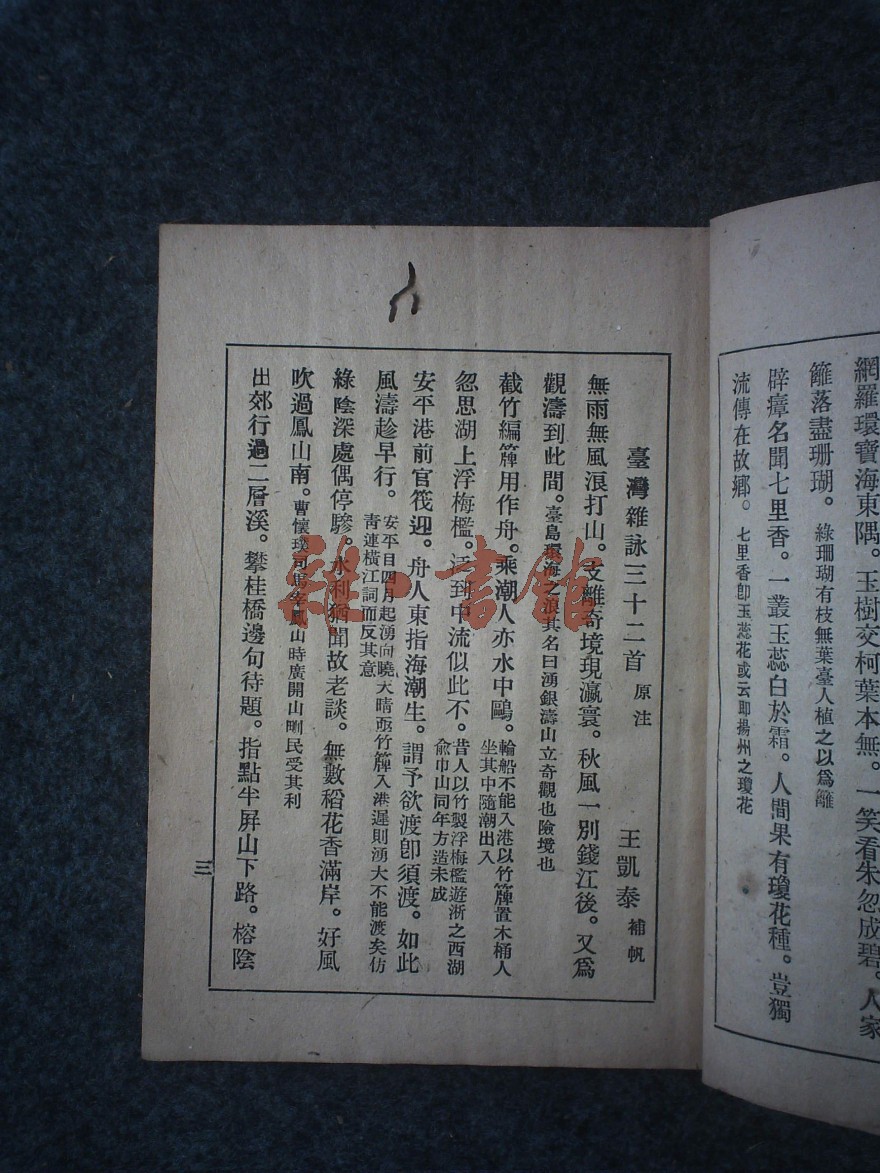 網羅環寶海東隅。玉樹交柯葉本無。一笑看朱忽成碧。人家
籬落盡珊瑚。綠珊瑚有枝無葉臺人植之以爲籬
辟瘴名聞七里香。一叢玉蕊白於霜。人間果有瓊花種。豈獨
流傳在故鄉。七里香卽玉蕊花或云卽揚州之瓊花
臺灣雜詠三十二首 原注 王凱泰 補帆
無雨無風浪打山。支離奇境現瀛寰。秋風一別錢江後。又爲
觀濤到此間。臺島環海之浪其名曰湧銀濤山立奇觀也險境也
截竹編簰用作舟。乘潮人亦水中鷗。輪船不能入港以竹簰置木桶人坐其中隨潮出入
忽思湖上浮梅檻。泛到中流似此不。昔人以竹製浮梅檻遊浙之西湖俞巾山同年方造未成
安平港前官筏迎。舟人東指海潮生。謂予欲渡卽須渡。如此
風濤趁早行。安平自四月起湧向曉大晴亟竹簰入港遲則湧大不能渡矣仿青蓮橫江詞而反其意
綠陰深處偶停驂。水利猶聞故老談。無數稻花香滿岸。好風
吹過鳳山南。曹懷璞司馬宰鳳山時廣開山圳民受其利
出郊行過二層溪。攀桂橋邊句待題。指點半屏山下路。榕陰
三
雜·書館